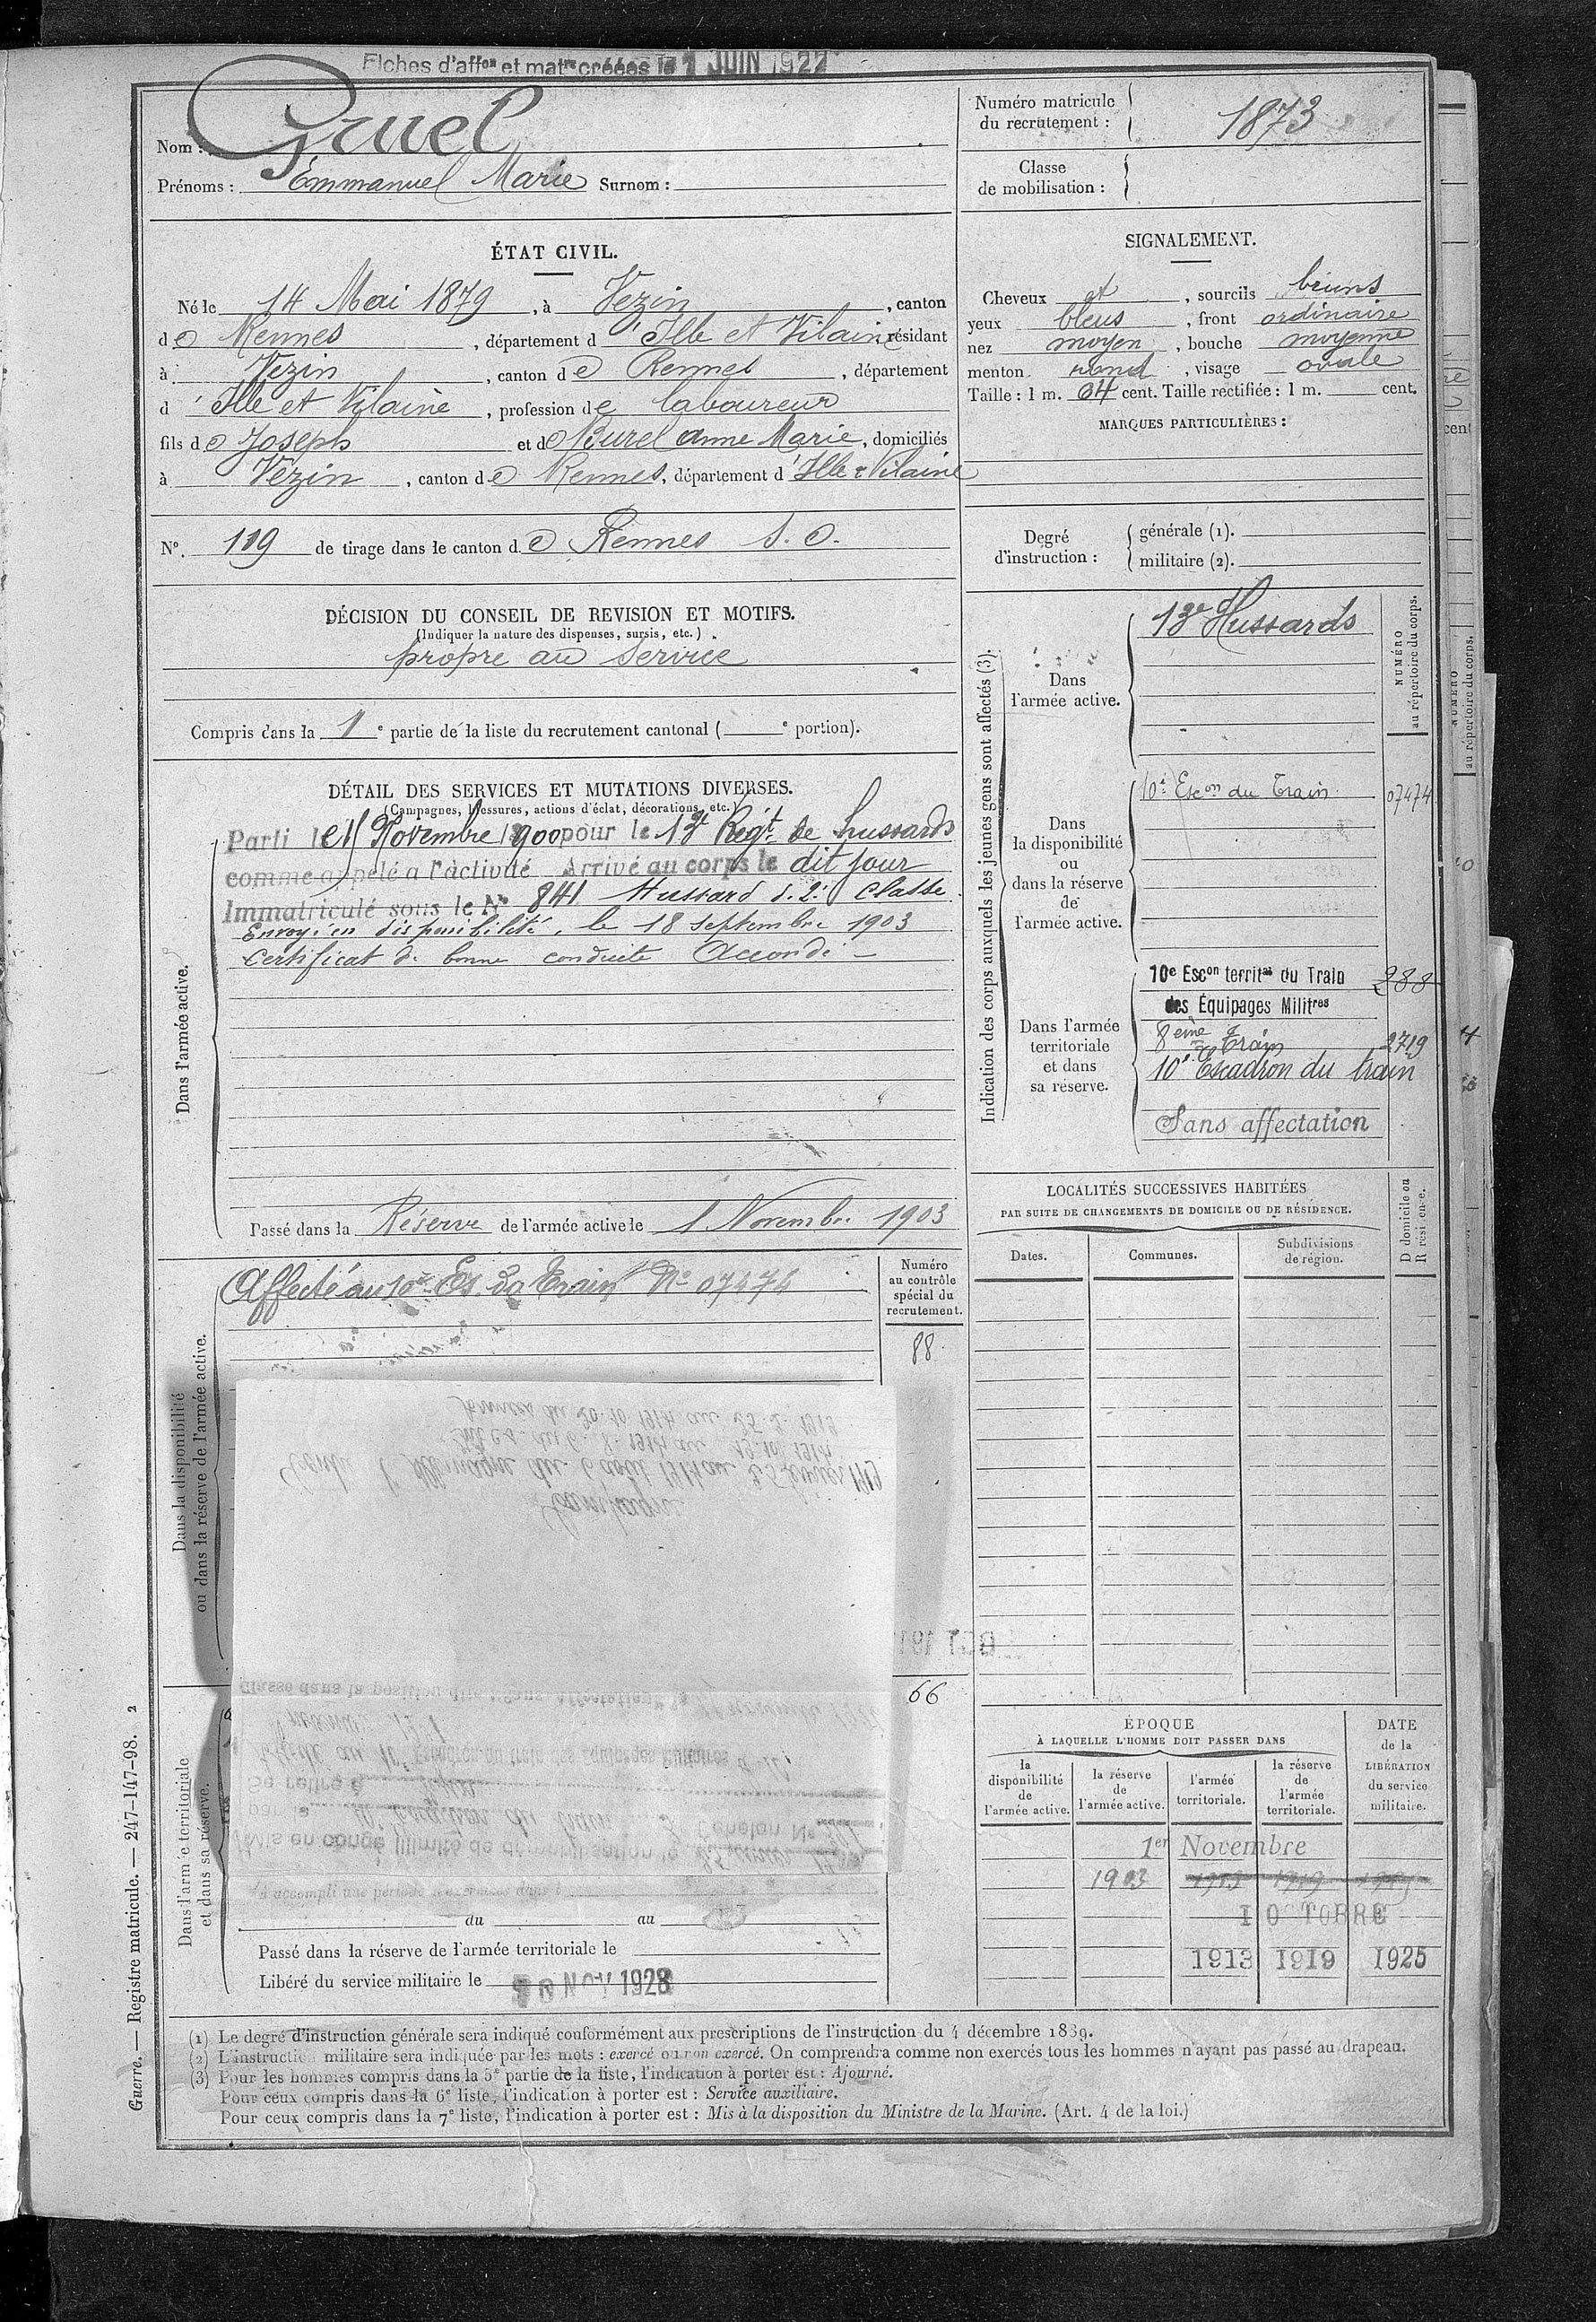 Fiches d'affon et matre créées le 1 JUIN 1927
Nom : Gruel
Prénoms : Emmanuel Marie Surnom :
Numéro matricule du recrutement : 1873
Classe de mobilisation :
ÉTAT CIVIL.
Né le 14 Mai 1879, à Vezin, canton
de Rennes, département d'Ille et Vilaine résidant
à Vezin, canton de Rennes, département
d'Ille et Vilaine, profession de laboureur
fils de Joseph et de Burel Anne Marie, domiciliés
à Vezin, canton de Rennes, département d'Ille & Vilaine
No. 119 de tirage dans le canton de Rennes S. O.
SIGNALEMENT.
Cheveux et, sourcils bruns
yeux bleus, front ordinaire
nez moyen, bouche moyenne
menton rond, visage ovale
Taille : 1 m. 64 cent. Taille rectifiée : 1 m. cent.
MARQUES PARTICULIÈRES :
Degré d'instruction :
générale (1).
militaire (2).
DÉCISION DU CONSEIL DE REVISION ET MOTIFS.
(Indiquer la nature des dispenses, sursis, etc.)
propre au service
Compris dans la 1e partie de la liste du recrutement cantonal ( e portion).
DÉTAIL DES SERVICES ET MUTATIONS DIVERSES.
(Campagnes, blessures, actions d'éclat, décorations, etc.)
Dans l'armée active.
Parti le 15 Novembre 1900 pour le 13e Régt de hussards
comme appelé à l'activité Arrivé au corps le dit jour
Immatriculé sous le No 841 Hussard d. 2e Classe
Envoyé en disponibilité, le 18 septembre 1903
Certificat de bonne conduite Accordé
Passé dans la Réserve de l'armée active le 1 Novembre 1903
Dans la disponibilité ou dans la réserve de l'armée active.
Affecté au 10e Es. du Train No 07474
Numéro au contrôle spécial du recrutement.
88
66
Campagne
Contre l'Allemagne du 6 août 1914 au 25 février 1919
Intér du 6. 8. 1914 au 19.10.1914
Armées du 20.10.1914 au 25.2.1919
Dans l'armée territoriale et dans sa réserve.
Mis en congé illimité de démobilisation le
Échelon No
Se retire à
10e Escadron du train des Équipages Militaires
Classé dans la position dite "Sans Affectation"
A accompli une période d'exercices dans
du au
Passé dans la réserve de l'armée territoriale le
Libéré du service militaire le 10 NOV 1928
Indication des corps auxquels les jeunes gens sont affectés (3).
NUMÉRO au répertoire du corps.
Dans l'armée active.
13e Hussards
Dans la disponibilité ou dans la réserve de l'armée active.
10e Escon du Train 07474
Dans l'armée territoriale et dans sa réserve.
10e Escon territal du Train 288
des Équipages Militres
8eme Train 2719
10e Escadron du train
Sans affectation
LOCALITÉS SUCCESSIVES HABITÉES
PAR SUITE DE CHANGEMENTS DE DOMICILE OU DE RÉSIDENCE.
Dates. Communes. Subdivisions de région. D domicile ou R résidence.
ÉPOQUE
À LAQUELLE L'HOMME DOIT PASSER DANS
la disponibilité de l'armée active.
la réserve de l'armée active.
l'armée territoriale.
la réserve de l'armée territoriale.
DATE de la LIBÉRATION du service militaire.
1er Novembre
1903 1913 1919
1 OCTOBRE
1913 1919 1925
(1) Le degré d'instruction générale sera indiqué conformément aux prescriptions de l'instruction du 4 décembre 1889.
(2) L'instruction militaire sera indiquée par les mots : exercé ou non exercé. On comprendra comme non exercés tous les hommes n'ayant pas passé au drapeau.
(3) Pour les hommes compris dans la 5e partie de la liste, l'indication à porter est : Ajourné.
Pour ceux compris dans la 6e liste, l'indication à porter est : Service auxiliaire.
Pour ceux compris dans la 7e liste, l'indication à porter est : Mis à la disposition du Ministre de la Marine. (Art. 4 de la loi.)
Guerre. — Registre matricule. — 247-147-98. 2